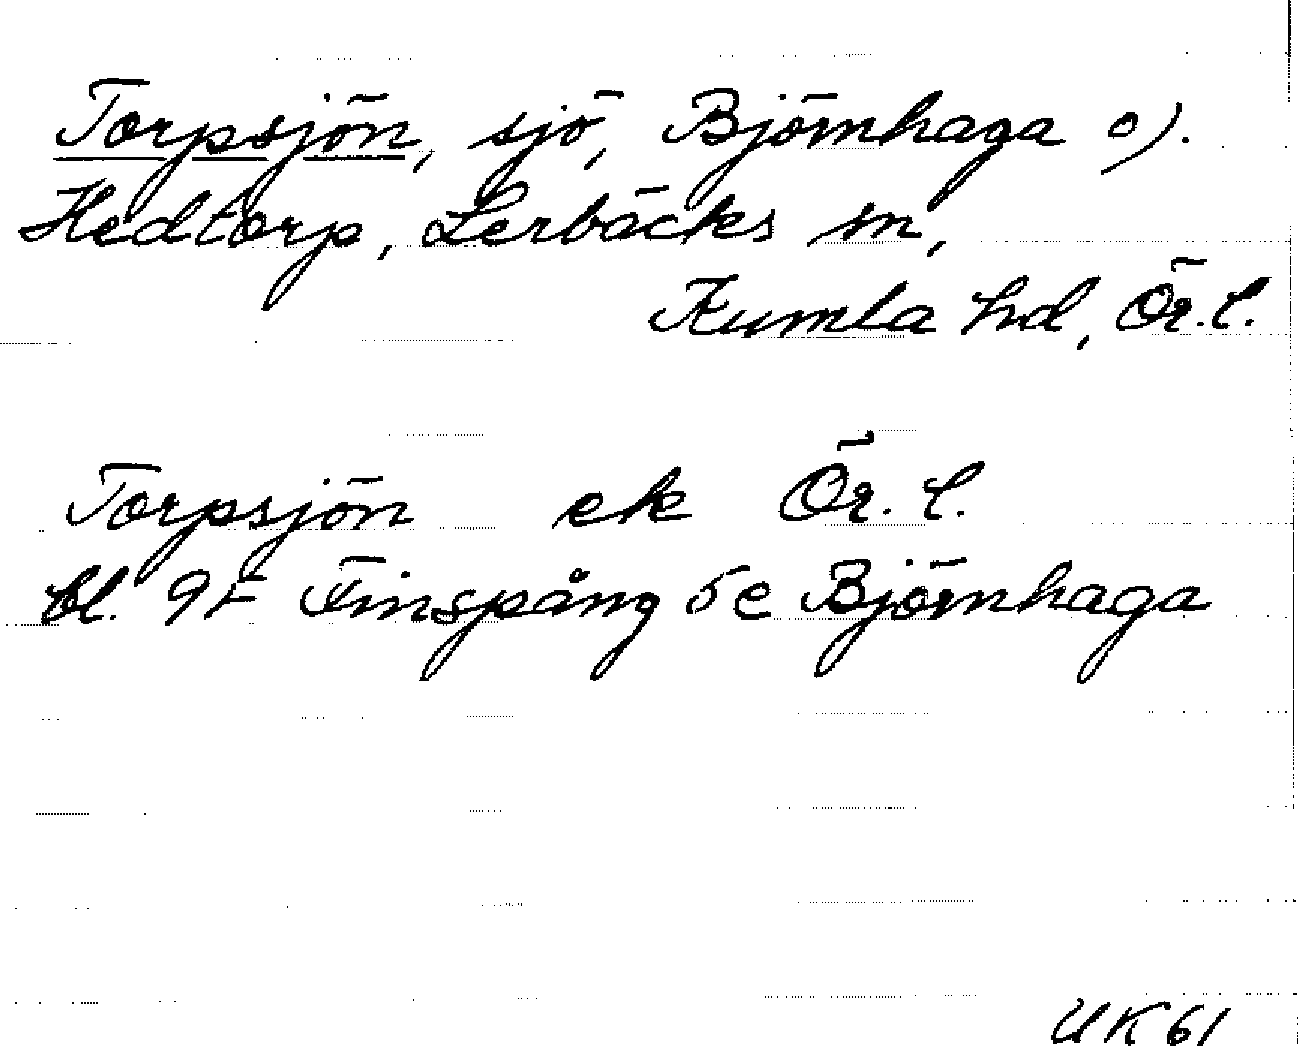 Torpsjön, sjö, Björnhaga o).
Hedtorp, Lerbäcks sn,
Kumla hd, Ör. l.
Torpsjön ek Ör. l.
bl. 9F Finspång 5e Björnhaga
UK 61